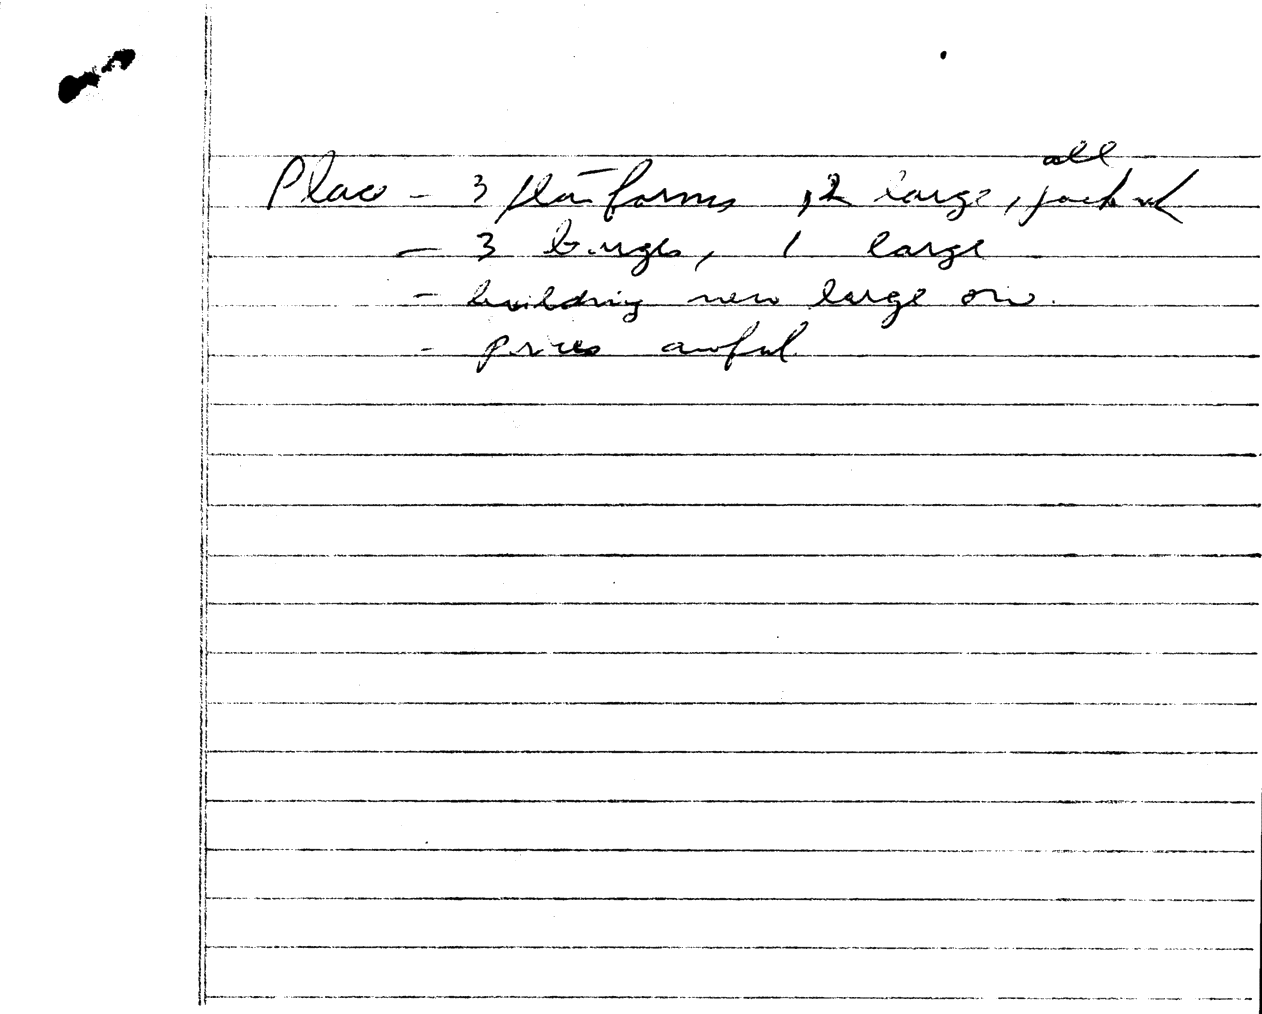 Place - 3 platforms, 2 large, all jack up
- 3 barges, 1 large
- building new large one.
- prices awful